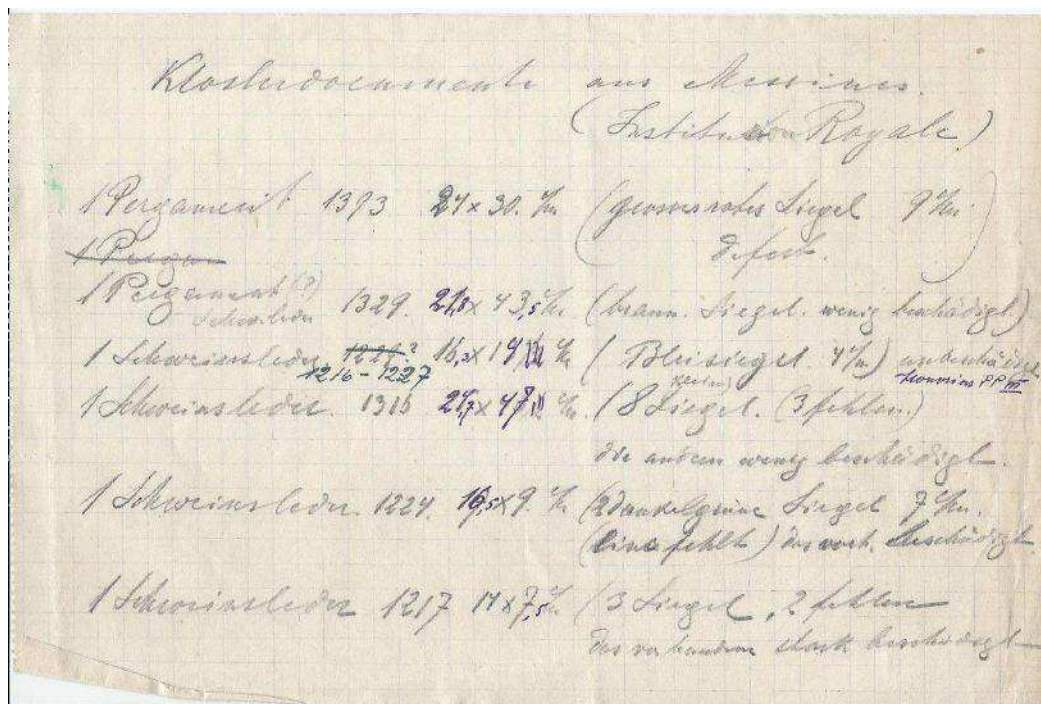 Klosterdocumente aus Messines.
(Institution Royale)
1 Pergament 1393 24 x 30. c/m (grosses rotes Siegel 9 c/m.
defect.)
1 Pergam
1 Pergament (?) 1329. 21,8 x 43,5 c/m (braun. Siegel. wenig beschädigt)
Schweinsleder
1 Schweinsleder 1229? 16,3 x 19 c/m (Bleisiegel. 4 c/m) unbeschädigt
1216 - 1227 Honorius PP III
1 Schweinsleder. 1316 24,7 x 47 c/m. (8 Siegel. (3 fehlen.)
die andern wenig beschädigt.
1 Schweinsleder. 1224. 16,5 x 9. c/m (2 dunkelgrüne Siegel 7 c/m.
(eines fehlt) das vorh. beschädigt
1 Schweinsleder 1217 17 x 7,5 c/m (3 Siegel, 2 fehlen
das vorhandene stark beschädigt